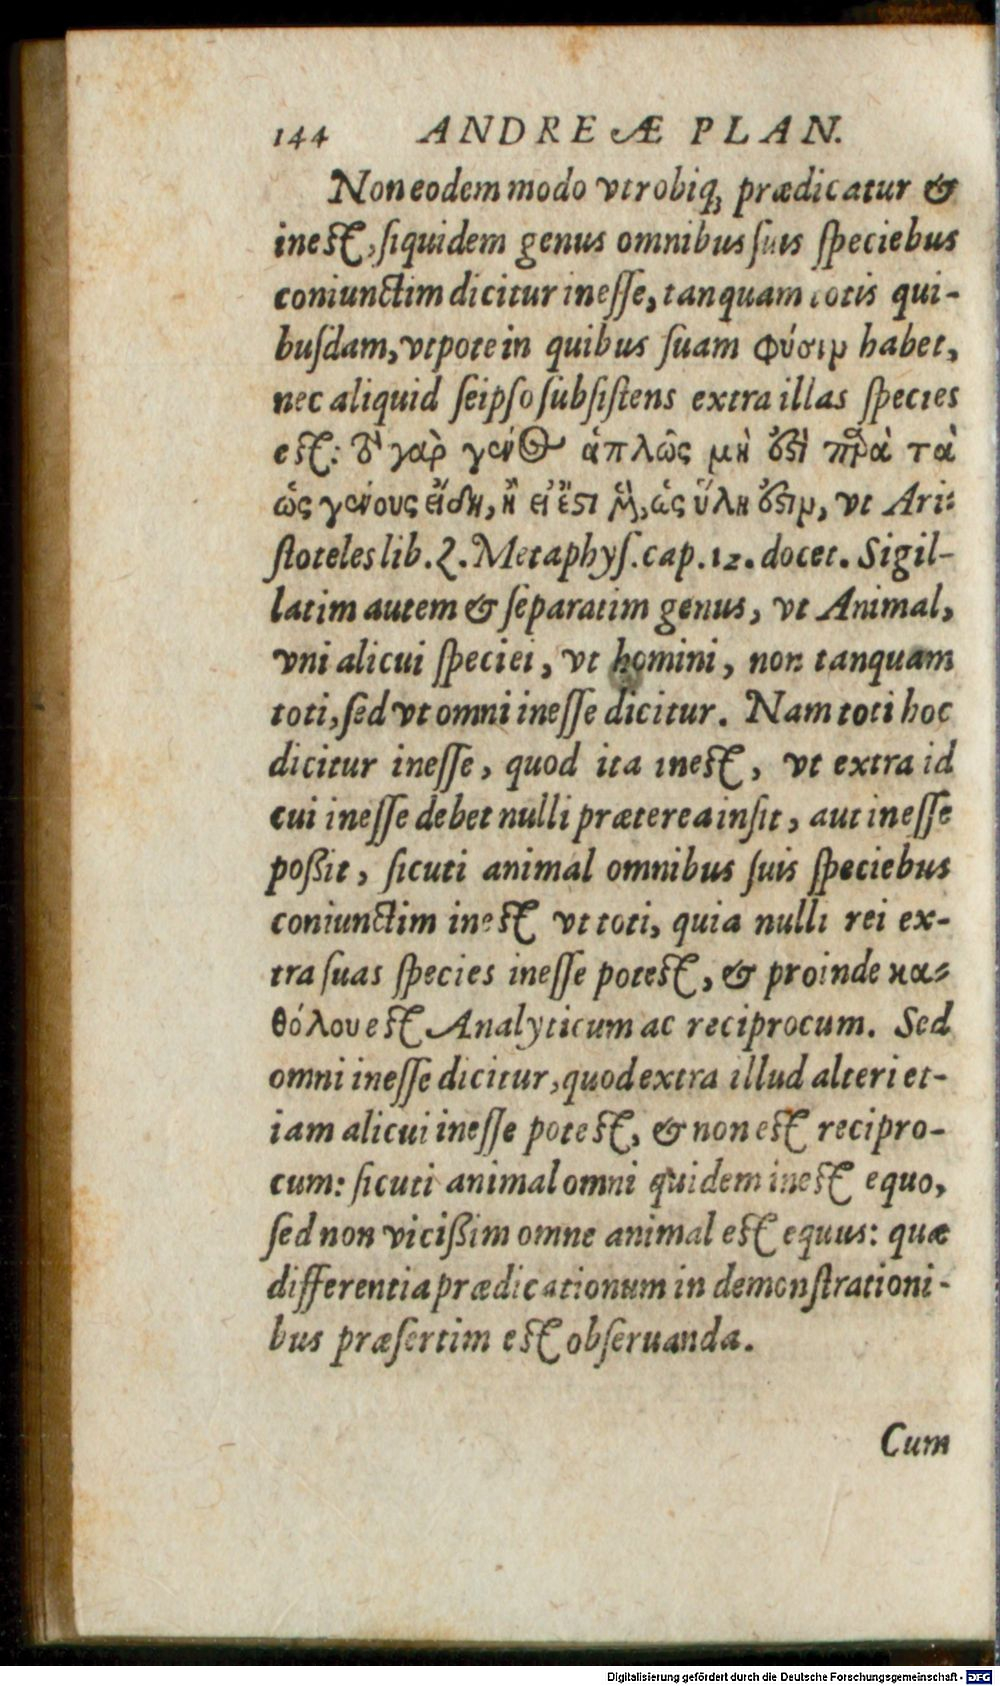 144 ANDREÆ PLAN.
Non eodem modo vtrobiq; prædicatur &
inest, siquidem genus omnibus suis speciebus
coniunctim dicitur inesse, tanquam totis qui-
busdam, vtpote in quibus suam φύσιν habet,
nec aliquid seipso subsistens extra illas species
est: τὸ γὰρ γένος ἁπλῶς μὴ ἐστὶ παρὰ τὰ
ὡς γένους εἴδη, ἢ εἰ ἔστι μὲν, ὡς ὕλη ἐστιν, vt Ari-
stoteles lib. ζ. Metaphys. cap. 12. docet. Sigil-
latim autem & separatim genus, vt Animal,
vni alicui speciei, vt homini, non tanquam
toti, sed vt omni inesse dicitur. Nam toti hoc
dicitur inesse, quod ita inest, vt extra id
cui inesse debet nulli præterea insit, aut inesse
poßit, sicuti animal omnibus suis speciebus
coniunctim inest vt toti, quia nulli rei ex-
tra suas species inesse potest, & proinde κα-
θόλου est Analyticum ac reciprocum. Sed
omni inesse dicitur, quod extra illud alteri et-
iam alicui inesse potest, & non est recipro-
cum: sicuti animal omni quidem inest equo,
sed non vicißim omne animal est equus: quæ
differentia prædicationum in demonstrationi-
bus præsertim est obseruanda.
Cum
Digitalisierung gefördert durch die Deutsche Forschungsgemeinschaft - DFG